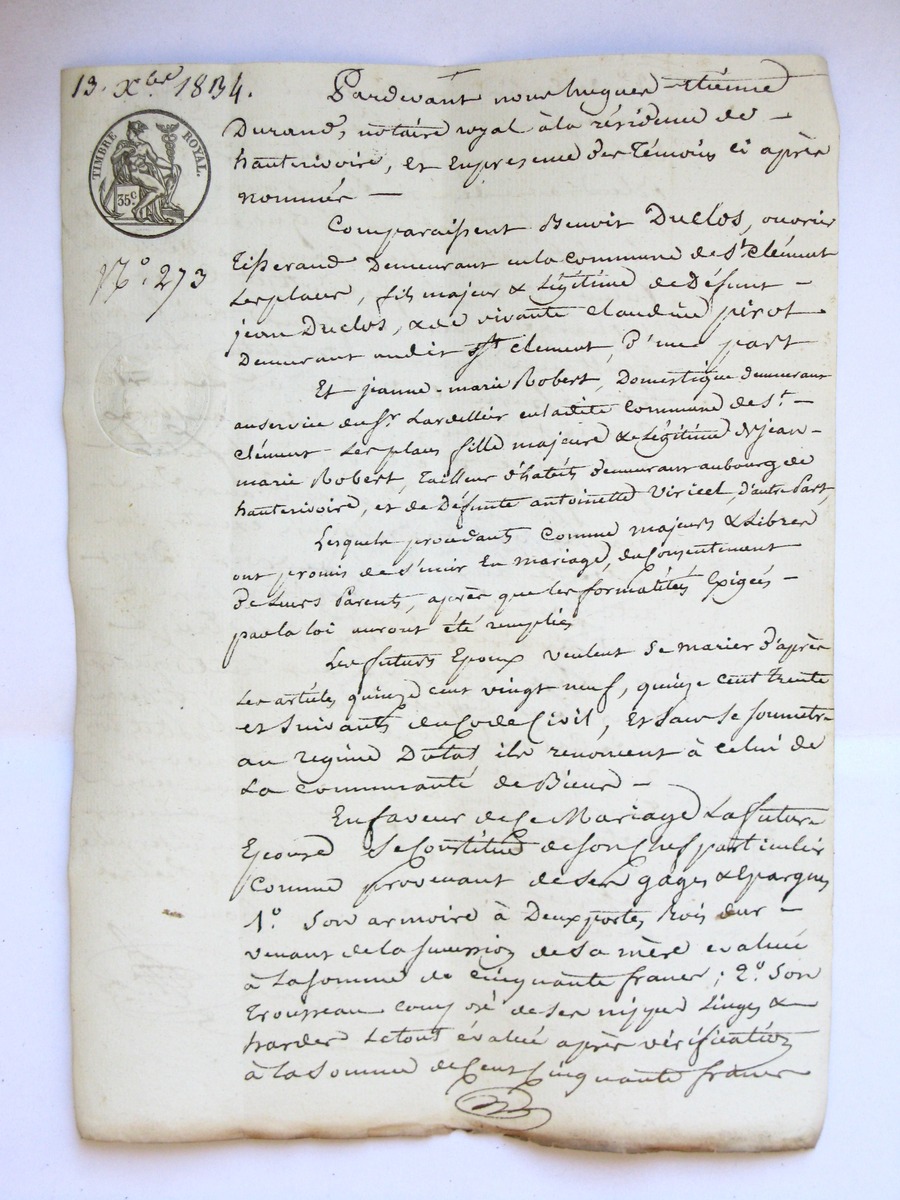 13. Xbre 1834.
TIMBRE ROYAL.
35 c
N.° 273
Pardevant nous hugues-étienne
Durand, notaire royal à la résidence de —
hauterivoire, et En présence des Témoins ci après
nommés —
Comparaissent Benoit Duclos, ouvrier
Tisserand Demeurant en la commune de St clément
Les places, fils majeur & Légitime de Défunt —
jean Duclos, & de vivante claudine pirot
Demeurant audit St clément, D'une part
Et jeanne-marie Robert, Domestique demeurant
au service du Sr Lardellier en ladite Commune de St —
clément - Les places fille majeure & Légitime de jean-
marie Robert, Tailleur d'habits demeurant au bourg de
hauterivoire, et de Défunte antoinette Viricel, D'autre Part,
Lesquels procédants Comme majeurs & Libres
ont promis de s'unir En mariage, du Consentement
De Leurs Parents, après que les formalités Exigées —
par la loi auront été remplies
Les futurs Epoux veulent Se marier D'après
Les articles quinze cent vingt neuf, quinze cent trente
et suivants du Code Civil, Et Sans Se soumettre
au regime Dotal, ils renoncent à Celui de
La Communauté de Biens —
En faveur de Ce Mariage La future
Epouse Se Constitue de Son Chef particulier
Comme provenant de Ses gages & Epargnes
1.° Son armoire à Deux portes bois dur —
venant de la Succession de Sa mère évaluée
à La somme de cinquante francs ; 2.° Son
Trousseau Composé de Ses nippes Linges &
hardes Le tout évalué après vérification
à La Somme de Cent Cinquante francs